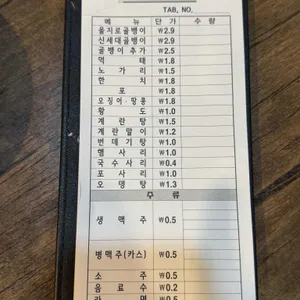 TAB, NO.
메 뉴 단 가 수 량
을지로골뱅이 ₩2.9
신세대골뱅이 ₩2.9
골뱅이 추가 ₩2.5
먹 태 ₩1.8
노 가 리 ₩1.5
한 치 ₩1.8
포 ₩1.8
오징어·땅콩 ₩1.8
황 도 ₩1.0
계 란 탕 ₩1.5
계 란 말 이 ₩1.2
번 데 기 탕 ₩1.0
햄 사 리 ₩1.0
국 수 사 리 ₩0.4
포 사 리 ₩1.0
오 뎅 탕 ₩1.3
주 류
생 맥 주 ₩0.5
병맥주(카스) ₩0.5
소 주 ₩0.5
음 료 수 ₩0.2
라 면 ₩0.5